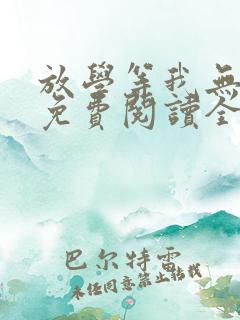 放學等我無
免費閱讀全
巴尔特雷
未经同意禁止转载